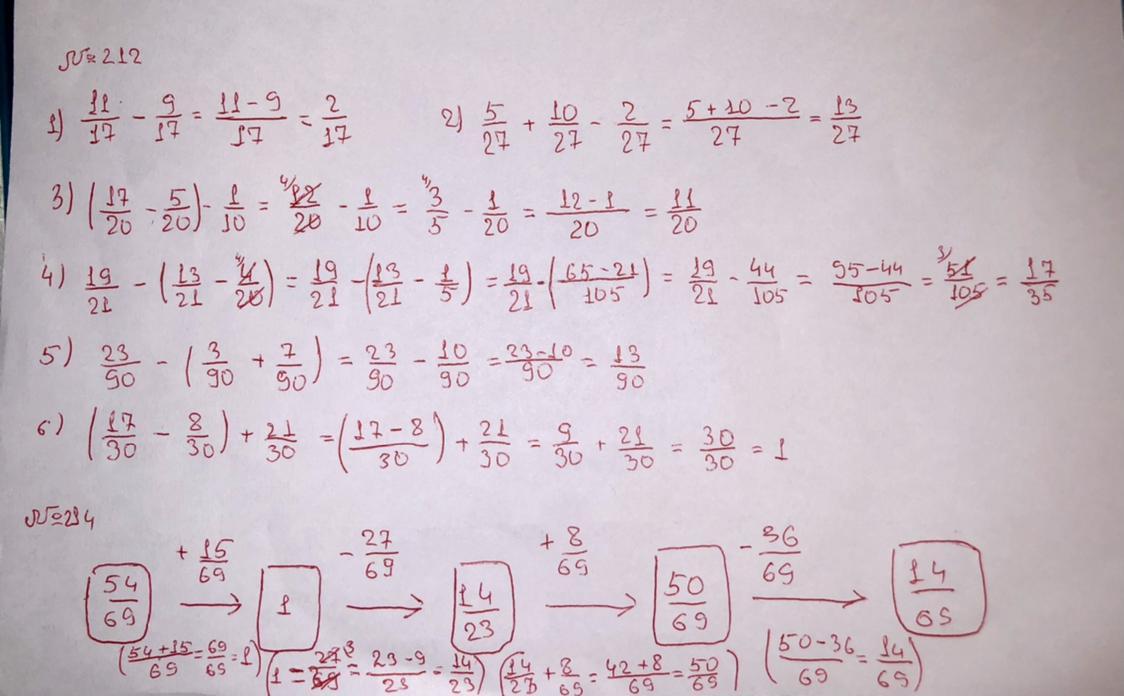 №212
1) 11/17 - 9/17 = (11-9)/17 = 2/17
2) 5/27 + 10/27 - 2/27 = (5+10-2)/27 = 13/27
3) (17/20 - 5/20) - 1/10 = 4/ 12/20 - 1/10 = 4/ 3/5 - 1/20 = (12-1)/20 = 11/20
4) 19/21 - (13/21 - 4/ 4/20) = 19/21 - (13/21 - 1/5) = 19/21 - ((65-21)/105) = 19/21 - 44/105 = (95-44)/105 = 3/ 51/105 = 17/35
5) 23/90 - (3/90 + 7/90) = 23/90 - 10/90 = (23-10)/90 = 13/90
6) (17/30 - 8/30) + 21/30 = ((17-8)/30) + 21/30 = 9/30 + 21/30 = 30/30 = 1
№214
+ 15/69 - 27/69 + 8/69 - 36/69
54/69 → 1 → 14/23 → 50/69 → 14/69
((54+15)/69 = 69/69 = 1) (1 - 27/69 = (23-9)/23 = 14/23) (14/23 + 8/69 = (42+8)/69 = 50/69) ((50-36)/69 = 14/69)